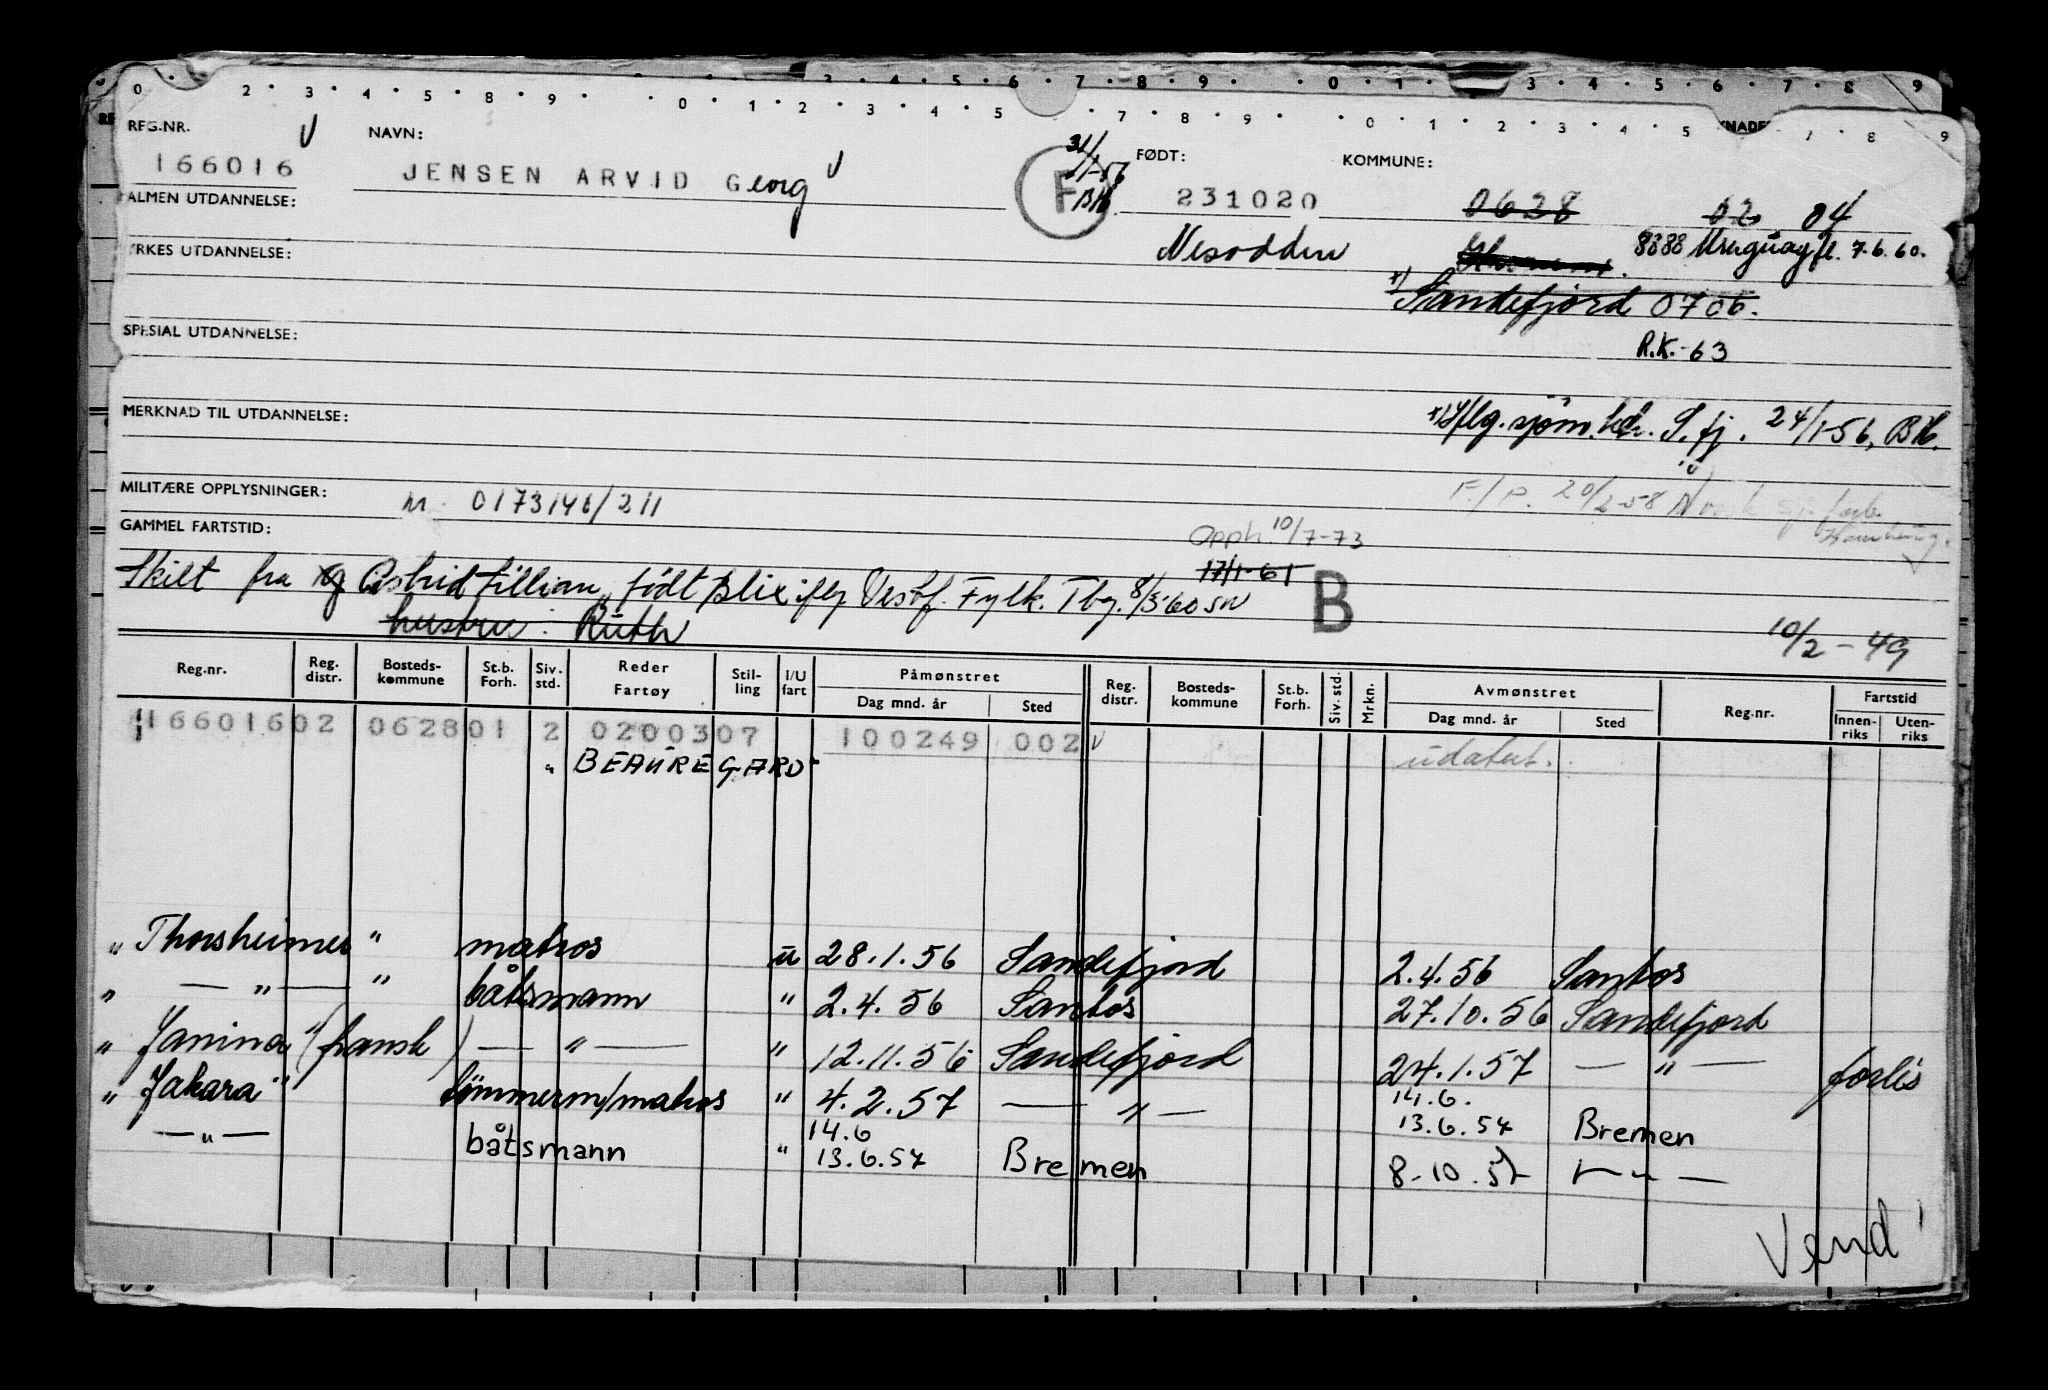 0 · 2 · 3 · 4 · 5 · 8 · 9 · · 0 · 1 · 2 · 3 · 4 · 5 · 7 · 8 · 9 · · 0 · 1 · 2 · 3 · 4 · 5 · 7 · 8 · 9
REG.NR. NAVN: FØDT: KOMMUNE:
31/1-56 BH.
166016 JENSEN ARVID Georg F 231020 0628 02 04
ALMEN UTDANNELSE:
Nesodden 8388 Uruguay fl. 7.6.60.
YRKES UTDANNELSE:
+) Sandefjord 0706.
SPESIAL UTDANNELSE: R.K.-63
MERKNAD TIL UTDANNELSE: +) iflg. sjøm.ktr. S.fj. 24/1-56, BH.
MILITÆRE OPPLYSNINGER: nr. 0173146/211 F./P. 20/2-58
GAMMEL FARTSTID: Opph. 10/7-73
17/1-61
Skilt fra Astrid Lillian, født Blix iflg Vestf. Fylk. Tbg. 8/3-60 SN B
hustru: Ruth 10/2-49
Reg.nr. Reg. distr. Bosteds-kommune St.b. Forh. Siv. std. Reder Fartøy Stil-ling I/U fart Påmønstret Dag mnd. år Sted Reg. distr. Bosteds-kommune St.b. Forh. Siv. std. Mrkn. Avmønstret Dag mnd. år Sted Reg.nr. Fartstid Innen-riks Uten-riks
16601602 062801 2 0200307 100249 002 V udatert.
" BEAUREGARD
" Thorsheimer " matros u 28.1.56 Sandefjord 2.4.56 Santos
" — " — " båtsmann " 2.4.56 Santos 27.10.56 Sandefjord
" Janina" (fransk) — " — " 12.11.56 Sandefjord 24.1.57 — " — forlis
" Jakara" tömmerm/matros " 4.2.57 — " — 14.6. 13.6.57 Bremen
— " — båtsmann " 14.6 13.6.57 Bremen 8-10.57 — " —
Vend!